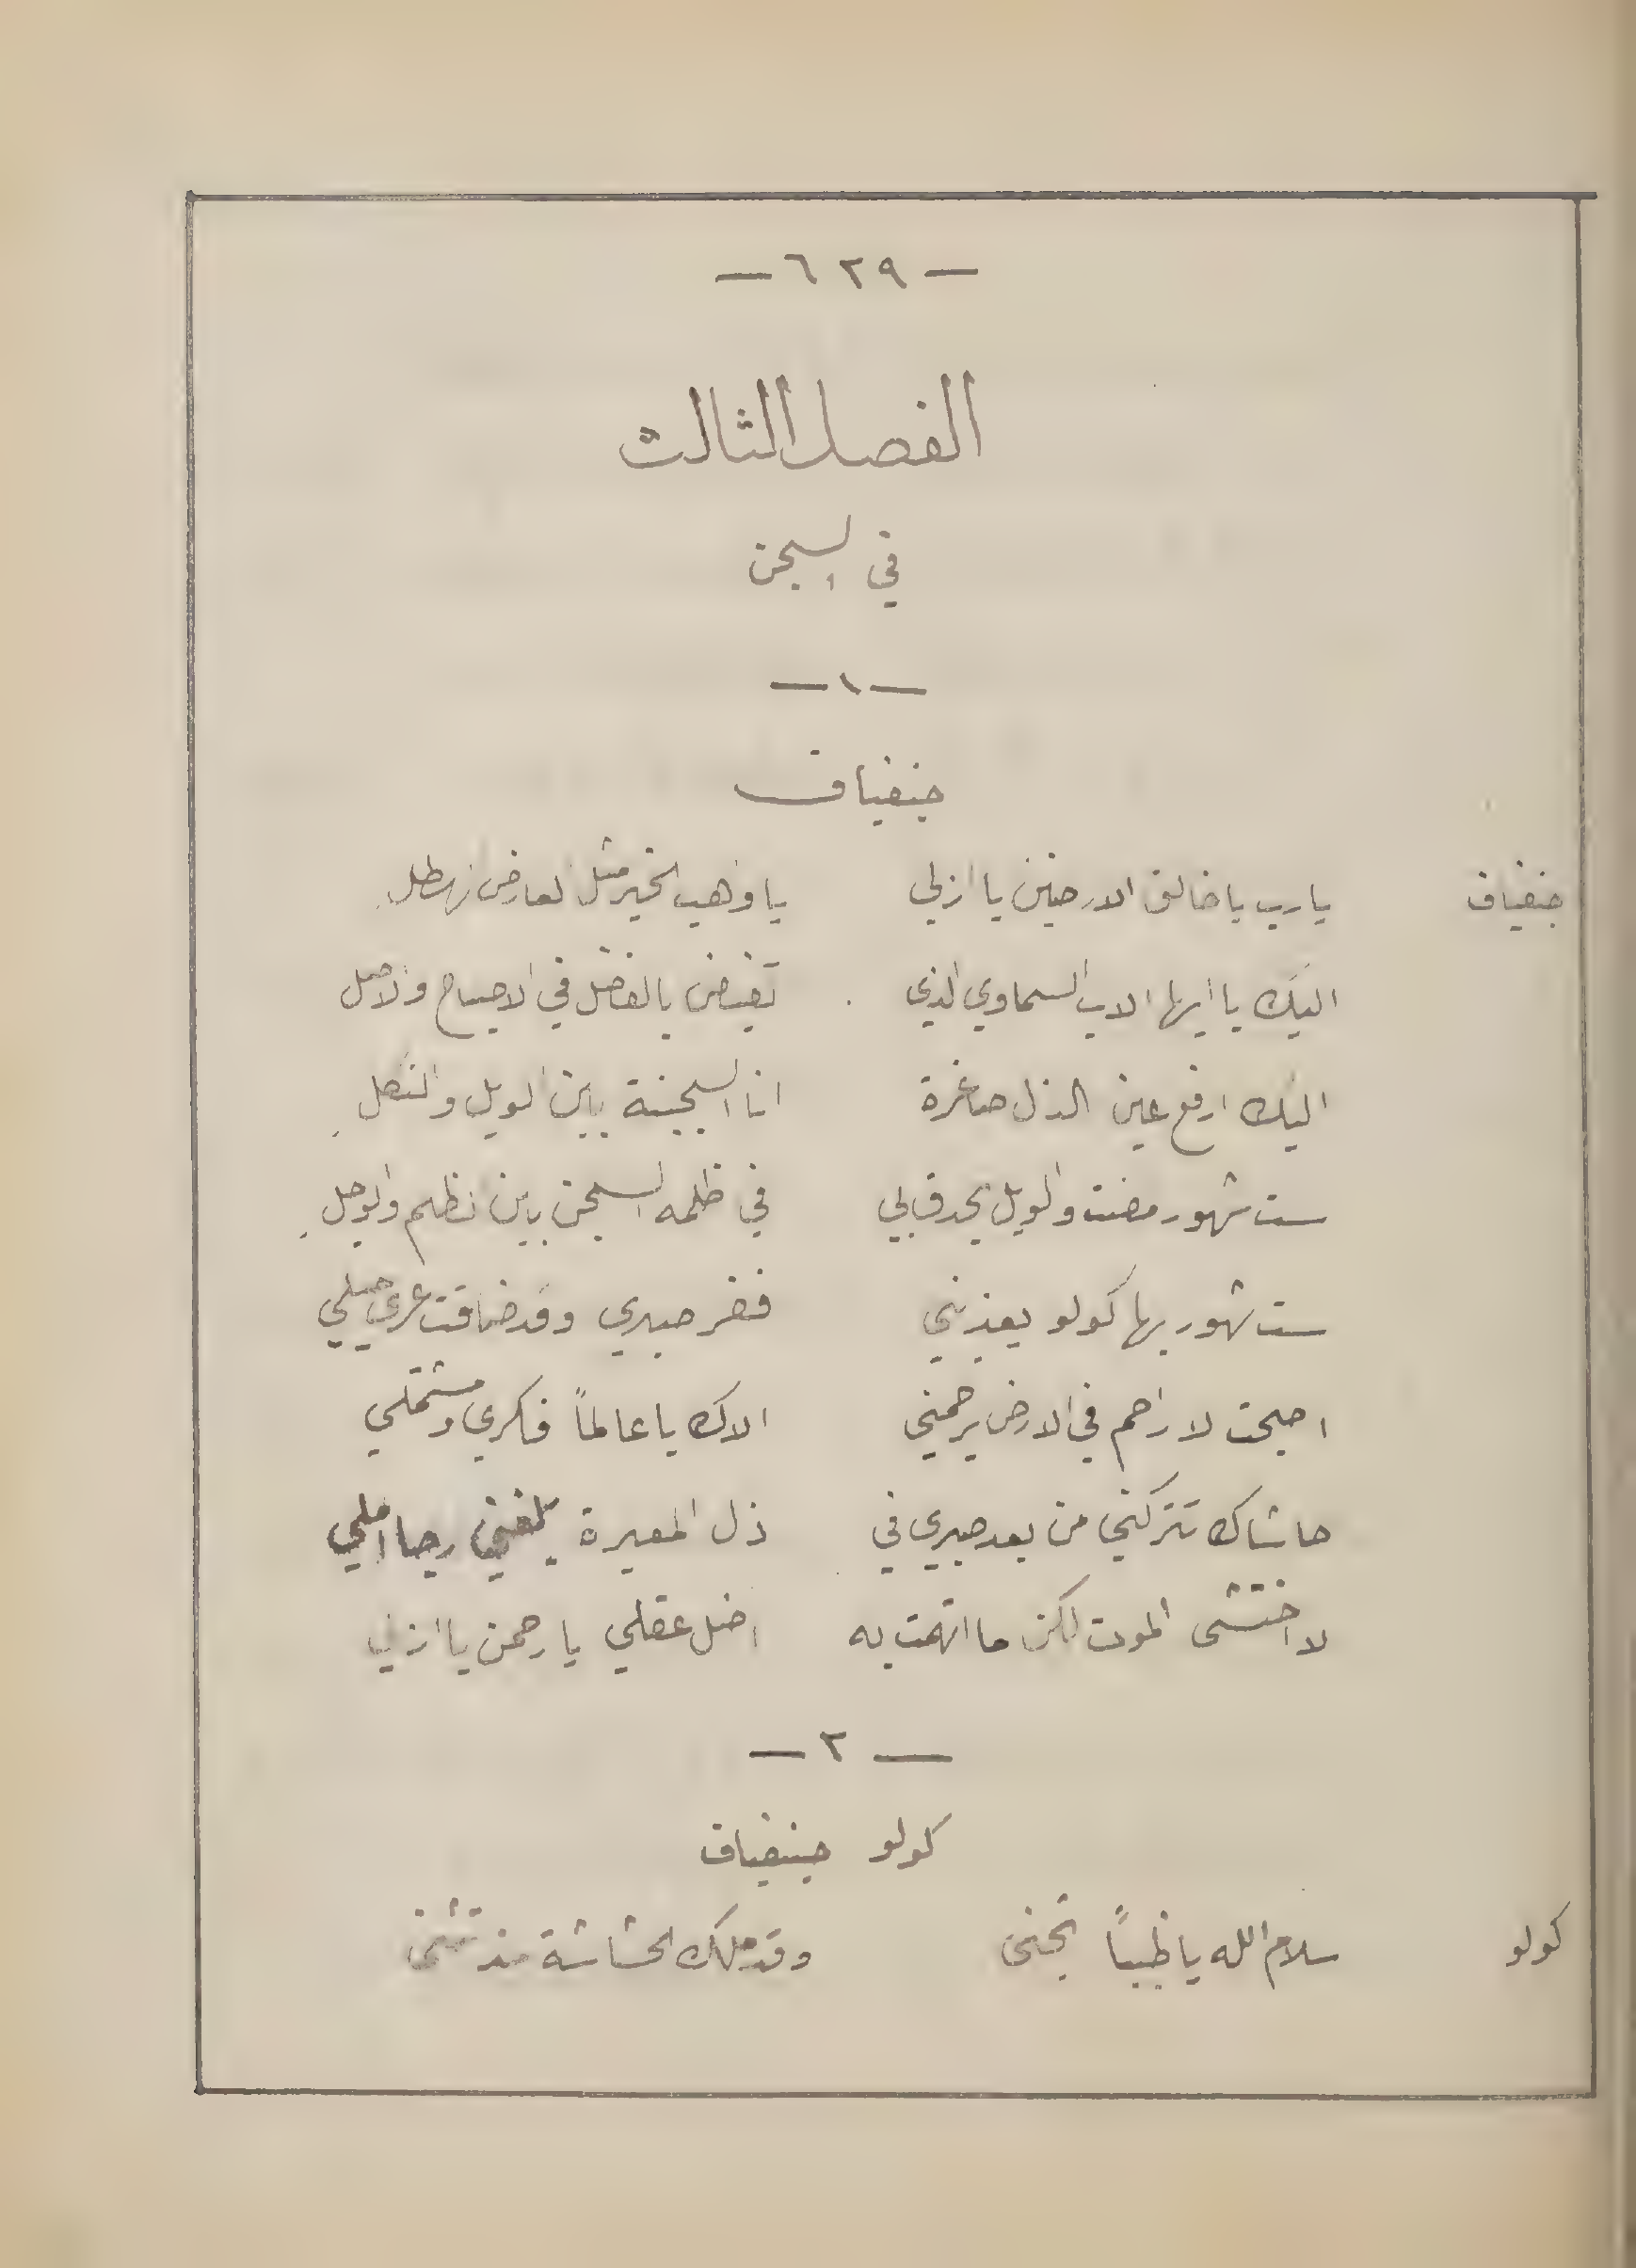 — ٦٢٩ —
الفصل الثالث
في السجن
— ١ —
جنفياف
جنفياف يا رب يا خالق الارضين يا ازلي يا واهب الخير مثل العارض الهطل
اليك يا ايها الاب السماوي الذي تفيض بالفضل في الاصباح والاصل
اليك ارفع عين الذل صاغرة انا السجينة بين الويل والثكل
ست شهور مضت والويل يحدق بي في ظلمه السجن بين الظلم والوجل
ست شهور بها كولو يعذبني ففر صبري وقد ضاقت عرى حيلي
اصبحت لا راحم في الارض يرحمني الاك يا عالماً فكري ومشتملي
حاشاك تتركني من بعد صبري في ذل المعيرة رجا املي
لا اختشى الموت لكن ما اتهمت به اضل عقلي يا رحمن يا ازلي
— ٢ —
كولو جنفياف
كولو سلام الله يا ظبياً تجنى وقد ملك الحشاشة مذ تثنى